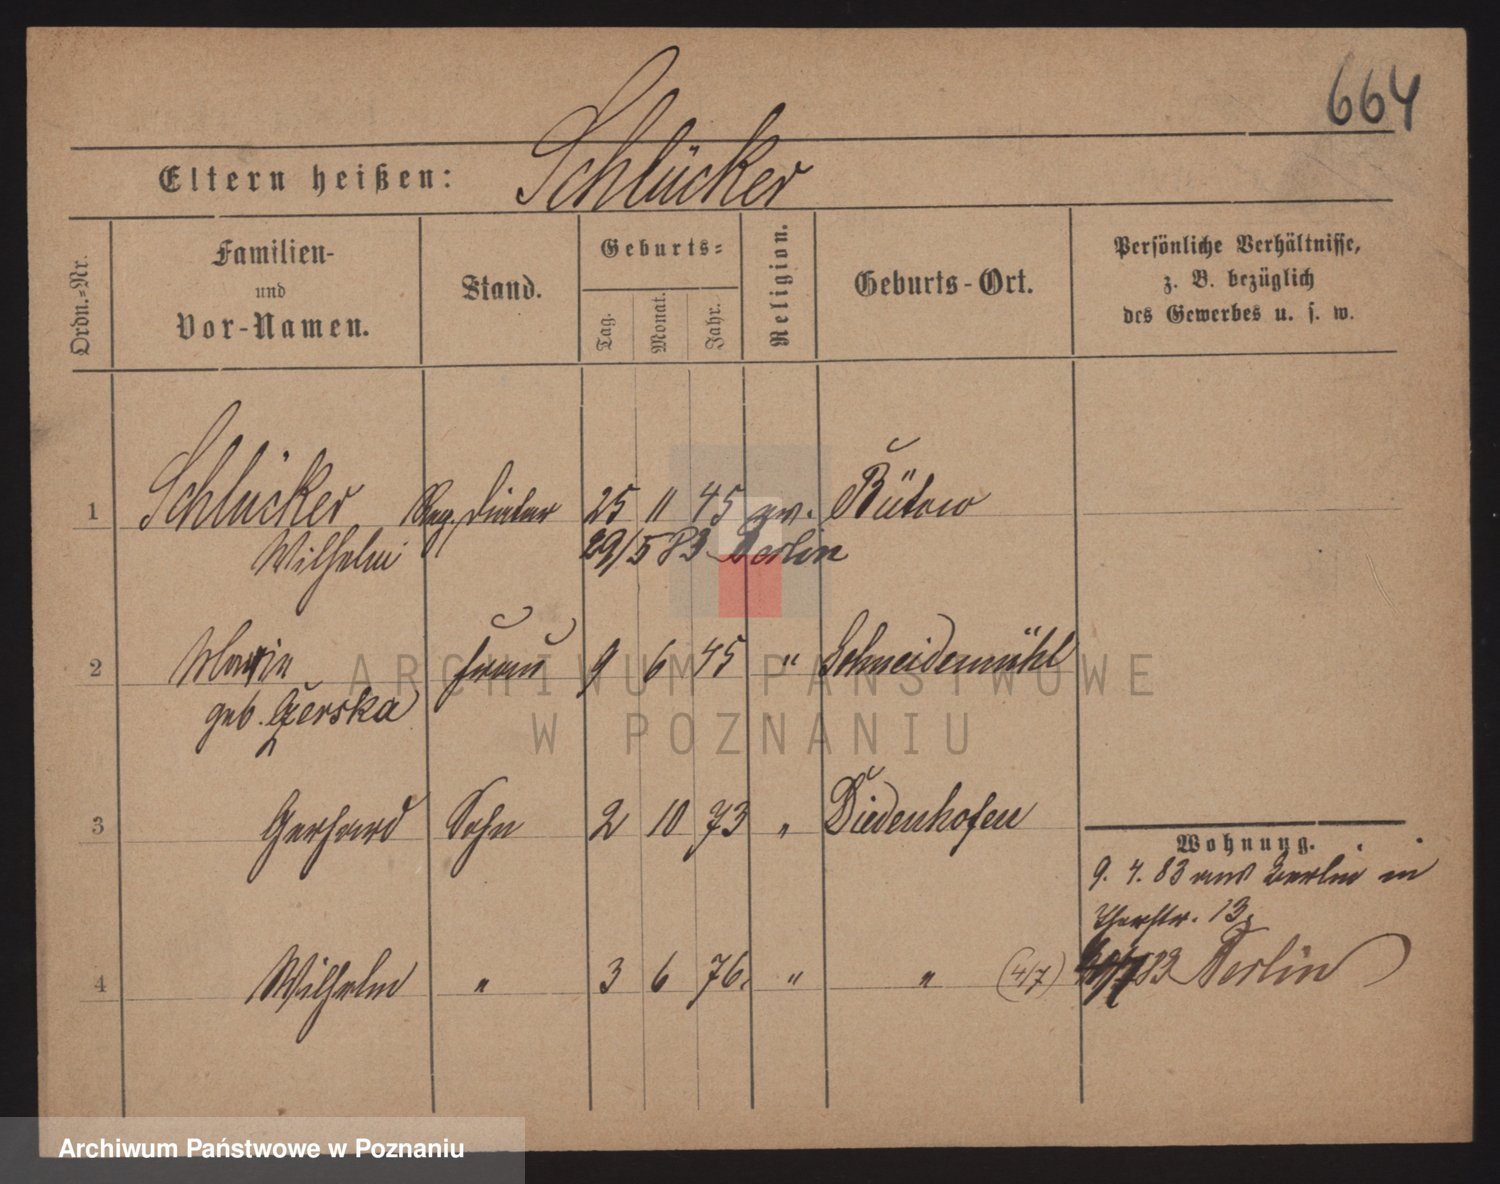 664
Eltern heißen: Schlücker
Ordn.=Nr.
Familien-
und
Vor-Namen.
Stand.
Geburts=
Tag. Monat. Jahr.
Religion.
Geburts-Ort.
Persönliche Verhältnisse,
z. B. bezüglich
des Gewerbes u. s. w.
1 Schlücker Reg. 25 11 45 ev. Bütow
Wilhelm 29/5 83 Berlin
2 Marie Frau 9 6 45 " Schneidemühl
geb. Gerska
3 Gerhard Sohn 2 10 73 " Diedenhofen
4 Wilhelm " 3 6 76. " " (4/7)
Wohnung.
9. 4. 83 aus Berlin in
13.
83 Berlin
ARCHIWUM PAŃSTWOWE
W POZNANIU
Archiwum Państwowe w Poznaniu